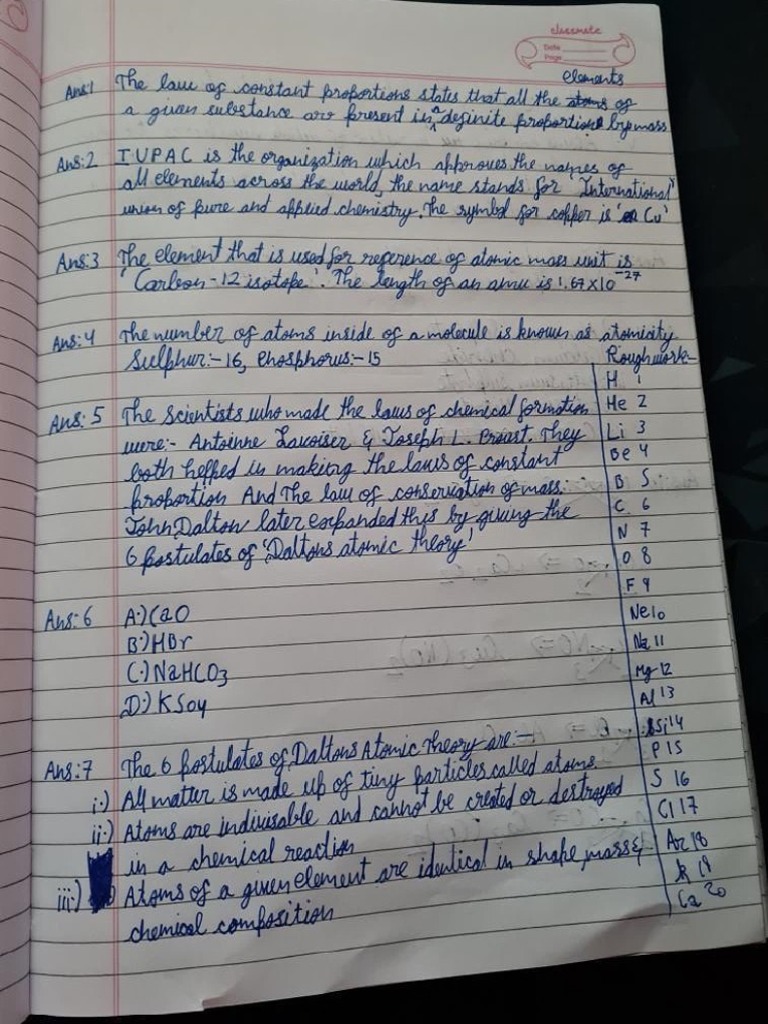 classmate
Date
Page
elements
Ans:1 The law of constant proportions states that all the atoms of
a given substance are present in a definite proportion by mass
Ans:2 IUPAC is the organization which approves the names of
all elements across the world, the name stands for 'International
union of pure and applied chemistry. The symbol for copper is 'Cu'
Ans:3 The element that is used for reference of atomic mass unit is
'Carbon-12 isotope'. The length of an amu is 1.67×10⁻²⁷
Ans:4 The number of atoms inside of a molecule is known as atomicity
Sulphur:-16, Phosphorus:-15
Rough work-
Ans:5 The scientists who made the laws of chemical formation
were:- Antoinne Lavoiser & Joseph L. Proust. They
both helped in making the laws of constant
proportion And The law of conservation of mass.
John Dalton later expanded this by giving the
6 postulates of 'Daltons atomic theory'
Ans:6 A:) CaO
B:) HBr
C:) NaHCO3
D:) KSO4
Ans:7 The 6 postulates of Daltons Atomic Theory are:-
i:) All matter is made up of tiny particles called atoms
ii:) Atoms are indivisable and cannot be created or destroyed
in a chemical reaction
iii:) Atoms of a given element are identical in shape, mass &
chemical composition
H 1
He 2
Li 3
Be 4
B 5
C 6
N 7
O 8
F 9
Ne 10
Na 11
Mg 12
Al 13
Si 14
P 15
S 16
Cl 17
Ar 18
k 19
Ca 20